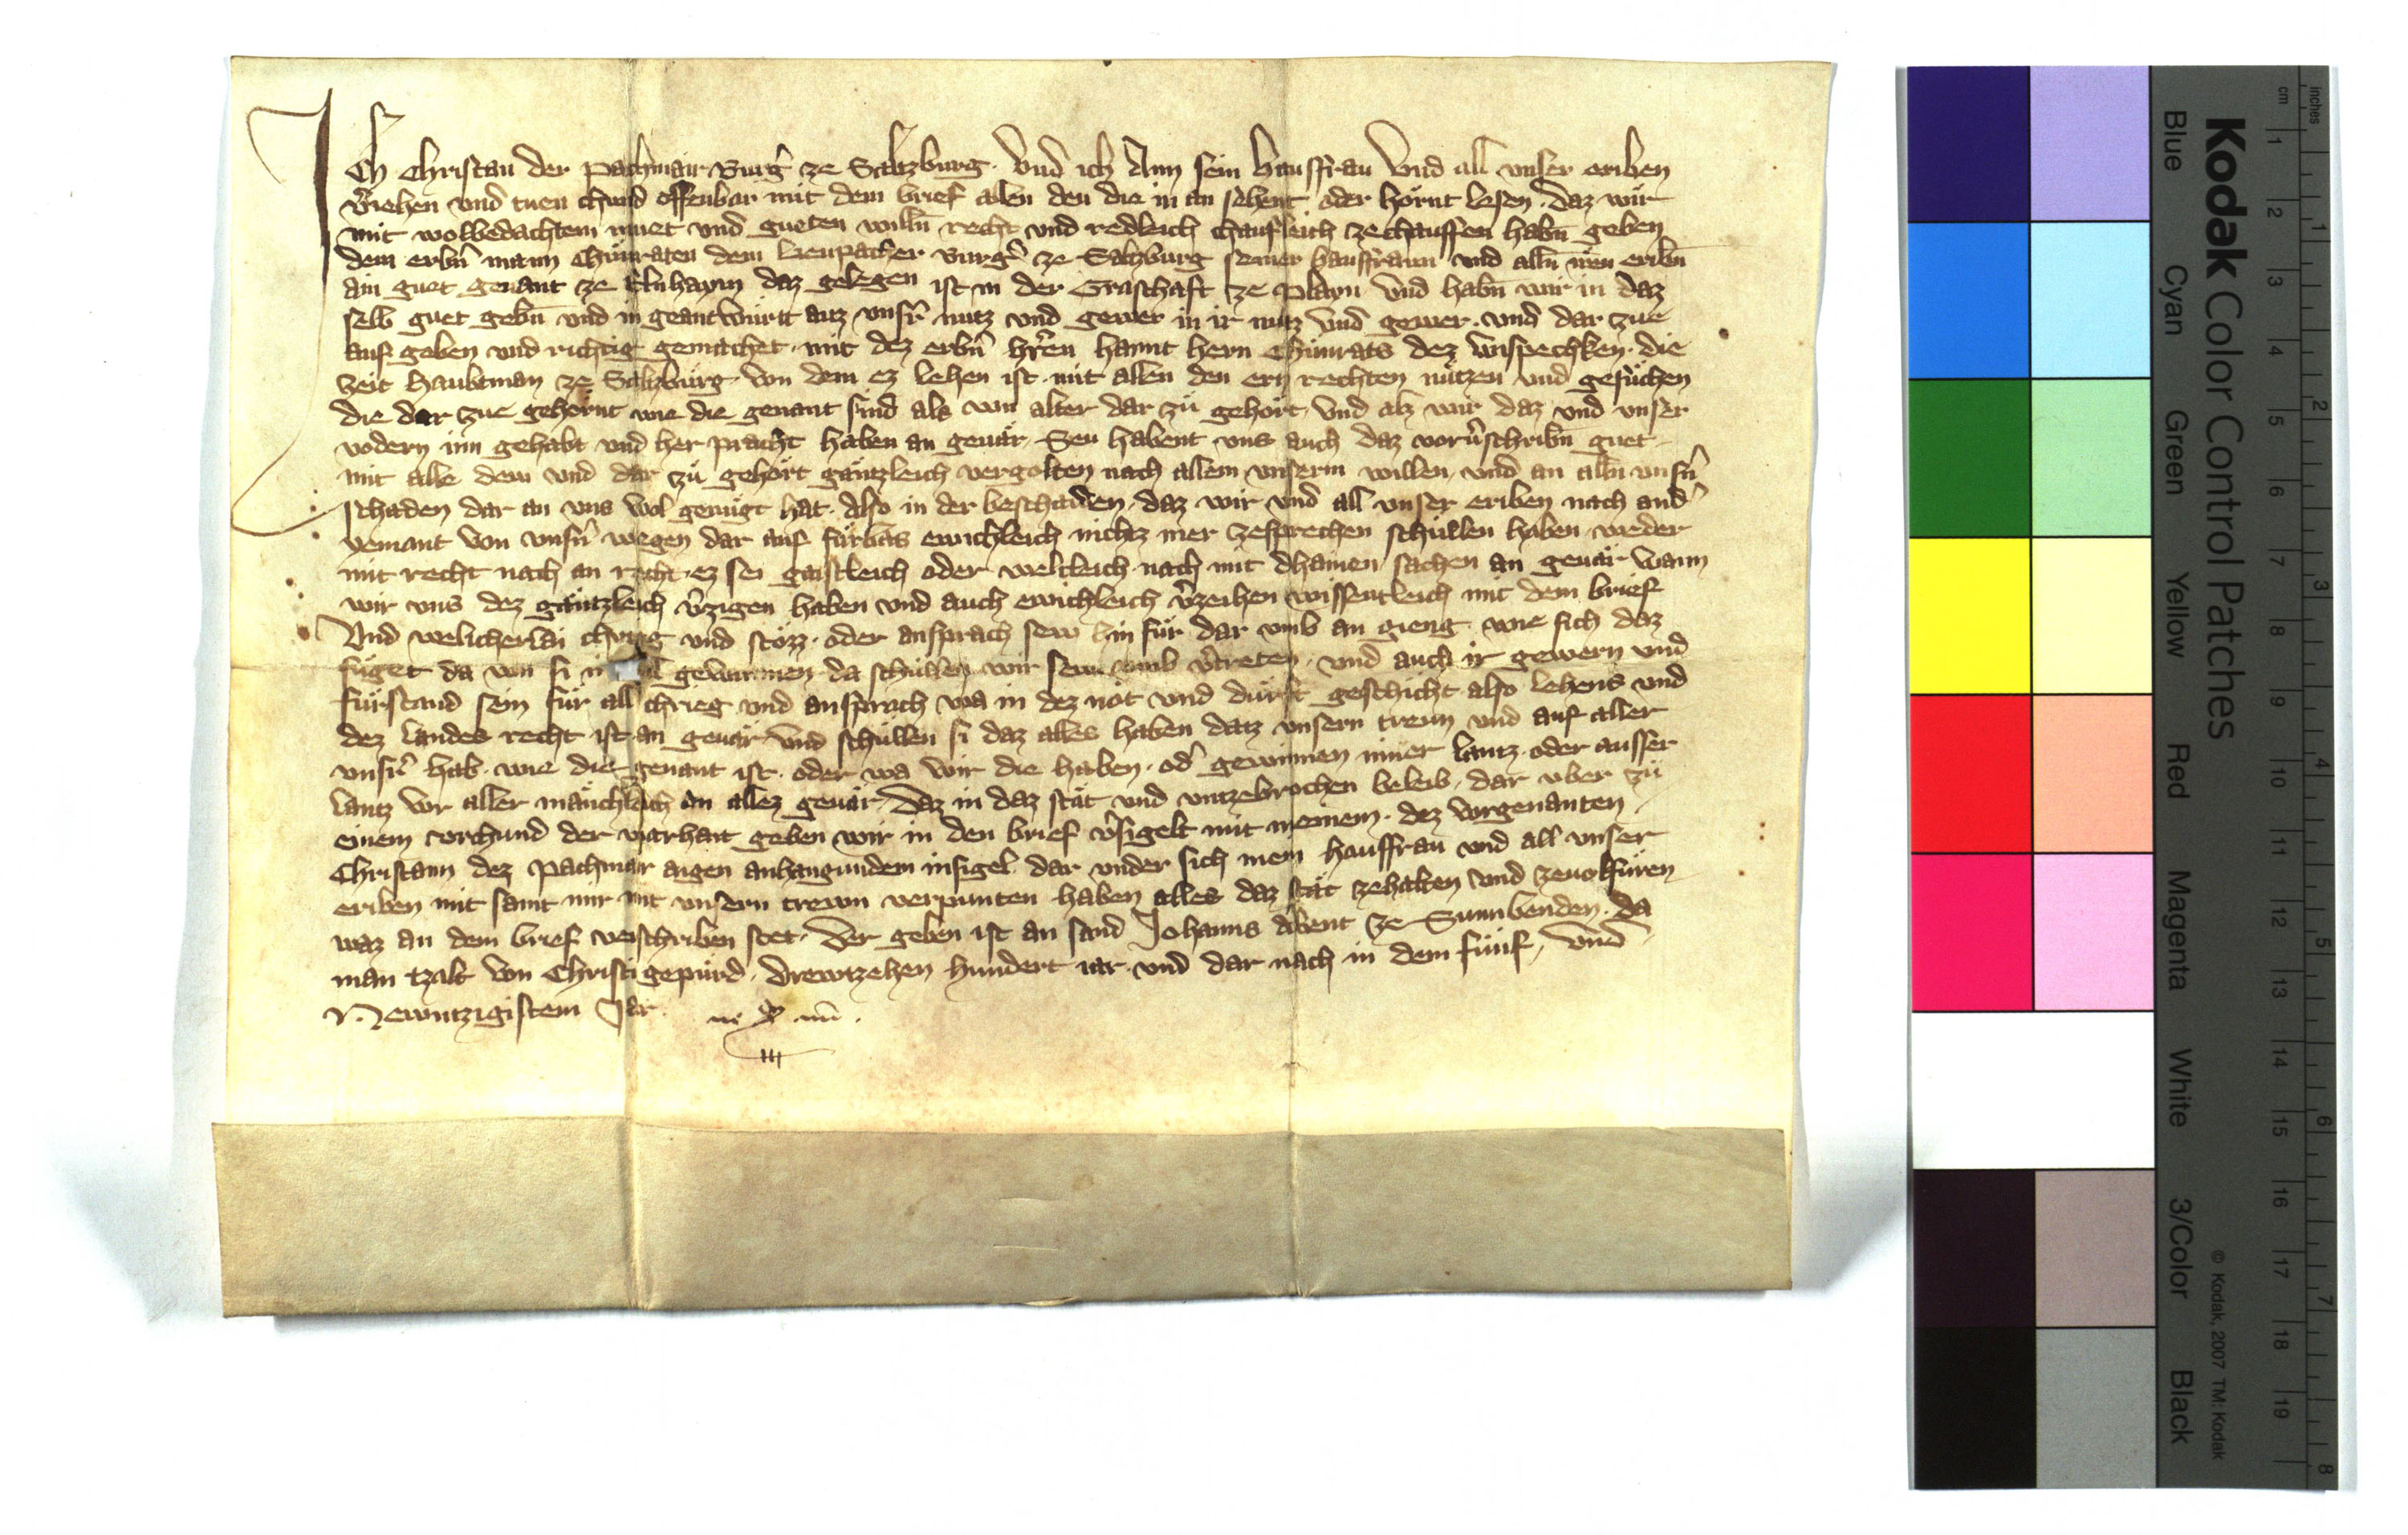 Ich Christan der Pachmair Burg̓ ze Saltzburg. Vnd ich Ann sein hausfrau Vnd all vnser eriben
v̓iehen vnd tuen chund offenbar mit dem brief allen den die in an sehent oder hörnt lesen. daz wir
mit wolbedachtem muet vnd gueten willn̄ recht vnd redleich chaufleich ze chauffen habn̄ geben
dem erbn̄ mann Chunraten dem Burg̓ ze Saltzburg seiner hausfrawn vnd alln̄ iren eribn̄
ain guet genant ze daz gelegen ist in der Graschaft ze Playn vnd habn̄ wir in daz
selb guet gebn̄ vnd in geantwürtt auz vnsr̄ nutz vnd gewer in ir nutz vnd gewer. vnd dar zue
auf geben vnd richtig gemachet. mit dez erbn̄ hr̄en hannt hern Chunrats dez die
zeit haubtman ze Saltzburg. von dem ez lehen ist. mit allen den ern rechten nützen vnd gesüchen
die dar zue gehörnt wie die genant sind als von alter dar zü gehört. vnd alz wir daz vnd vnser
vodern inn gehabt vnd her pracht haben an geuär. Seu habent vns auch daz vorv̓schribn̄ guet
mit alle dem vnd dar zü gehört gäntzleich vergolten nach allem vnserm willen, vnd an alln̄ vnsn̄
schaden dar an vns wol genügt hat. Also in der beschaiden, daz wir vnd all vnser eriben nach and̓
yemant von vnsn̄ wegen dar auf fürbas ewichleich nichtz mer ze sprechen schüllen haben weder
mit recht nach an recht. ez sei gaistleich oder weltleich nach mit dhainen sachen an geuär wann
wir vns dez gäntzleich v̓zigen haben vnd auch ewichleich v̓zeihen wissentleich mit dem brief
Vnd welicherlai chrieg vnd stözz. oder ansprach sew hin für dar vmb an gieng. wie sich daz
füget da von si gewunnen. da schüllen wir sew vmb v̓treten, vnd auch ir gewern vnd
fürstand sein für all chrieg vnd ansprach wa in dez nöt vnd dürft geschicht also lehens vnd
dez landes recht ist an geuär. Vnd schüllen si daz alles haben datz vnsern trewn vnd auf aller
vnsr̄ hab. wie die genant ist. oder wa wir die haben. od̓ gewinnen inner lantz. oder ausser
lantz vor aller mänchleich an allez geuär. Daz in daz stät vnd vnzebrochen beleib, dar vber zü
einem vrchund der warhait geben wir in den brief v̓sigelt mit meinem. dez vorgenanten
Christann dez Pachmair aigen anhangundem insigel dar vnder sich mein hausfrau vnd all vnser
eriben mit samt mir mit vnsern trewn verpunten haben alles daz stät ze halten vnd ze uolfüren
waz an dem brief verschriben stet. Der geben ist an sand Johanns abent ze Sunnbenden. da
man tzalt von Christi gepürd. drewtzehen hundert iar. vnd dar nach in dem fünf, vnd
Newntzigistem Jar.
Kodak Color Control Patches
Blue Cyan Green Yellow Red Magenta White 3/Color Black
© Kodak, 2007 TM: Kodak
cm 1 2 3 4 5 6 7 8 9 10 11 12 13 14 15 16 17 18 19
inches 1 2 3 4 5 6 7 8